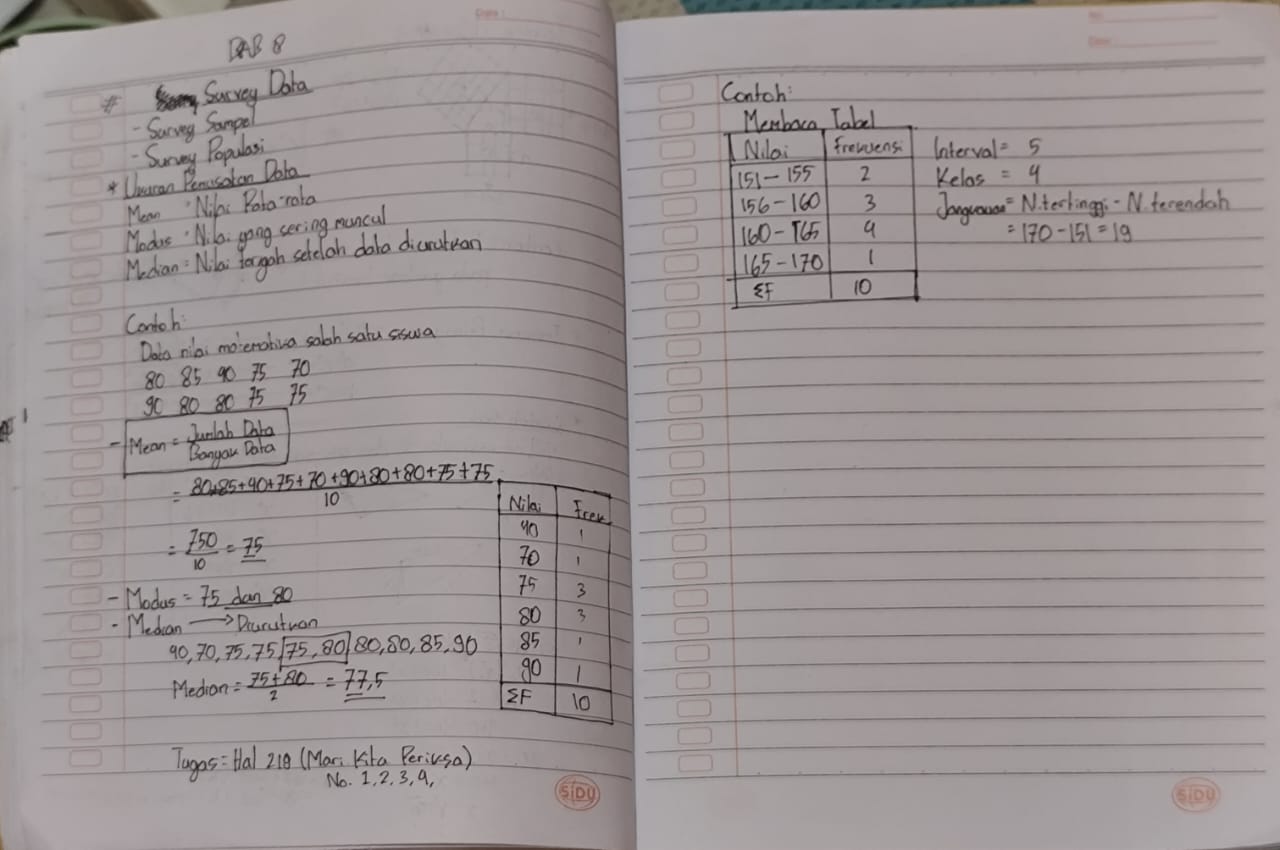 BAB 8
# Survey Data
- Survey Sampel
- Survey Populasi
* Ukuran Pemusatan Data
Mean = Nilai Rata-rata
Modus = Nilai yang sering muncul
Median = Nilai tengah setelah data diurutkan
Contoh:
Data nilai matematika salah satu siswa
80 85 90 75 70
90 80 80 75 75
- Mean = Jumlah Data
Banyak Data
= 80+85+90+75+70+90+80+80+75+75
10
= 750 = 75
10
- Modus = 75 dan 80
- Median → Diurutkan
40, 70, 75, 75, 75, 80, 80, 80, 85, 90
Median = 75+80 = 77,5
2
Nilai Frek
40 1
70 1
75 3
80 3
85 1
90 1
ΣF 10
Tugas = Hal 218 (Mari Kita Periksa)
No. 1, 2, 3, 4,
SiDU
Contoh:
Membaca Tabel
Nilai frekuensi
151 - 155 2
156 - 160 3
160 - 165 4
165 - 170 1
ΣF 10
Interval = 5
Kelas = 4
Jangkauan = N.tertinggi - N.terendah
= 170 - 151 = 19
SiDU